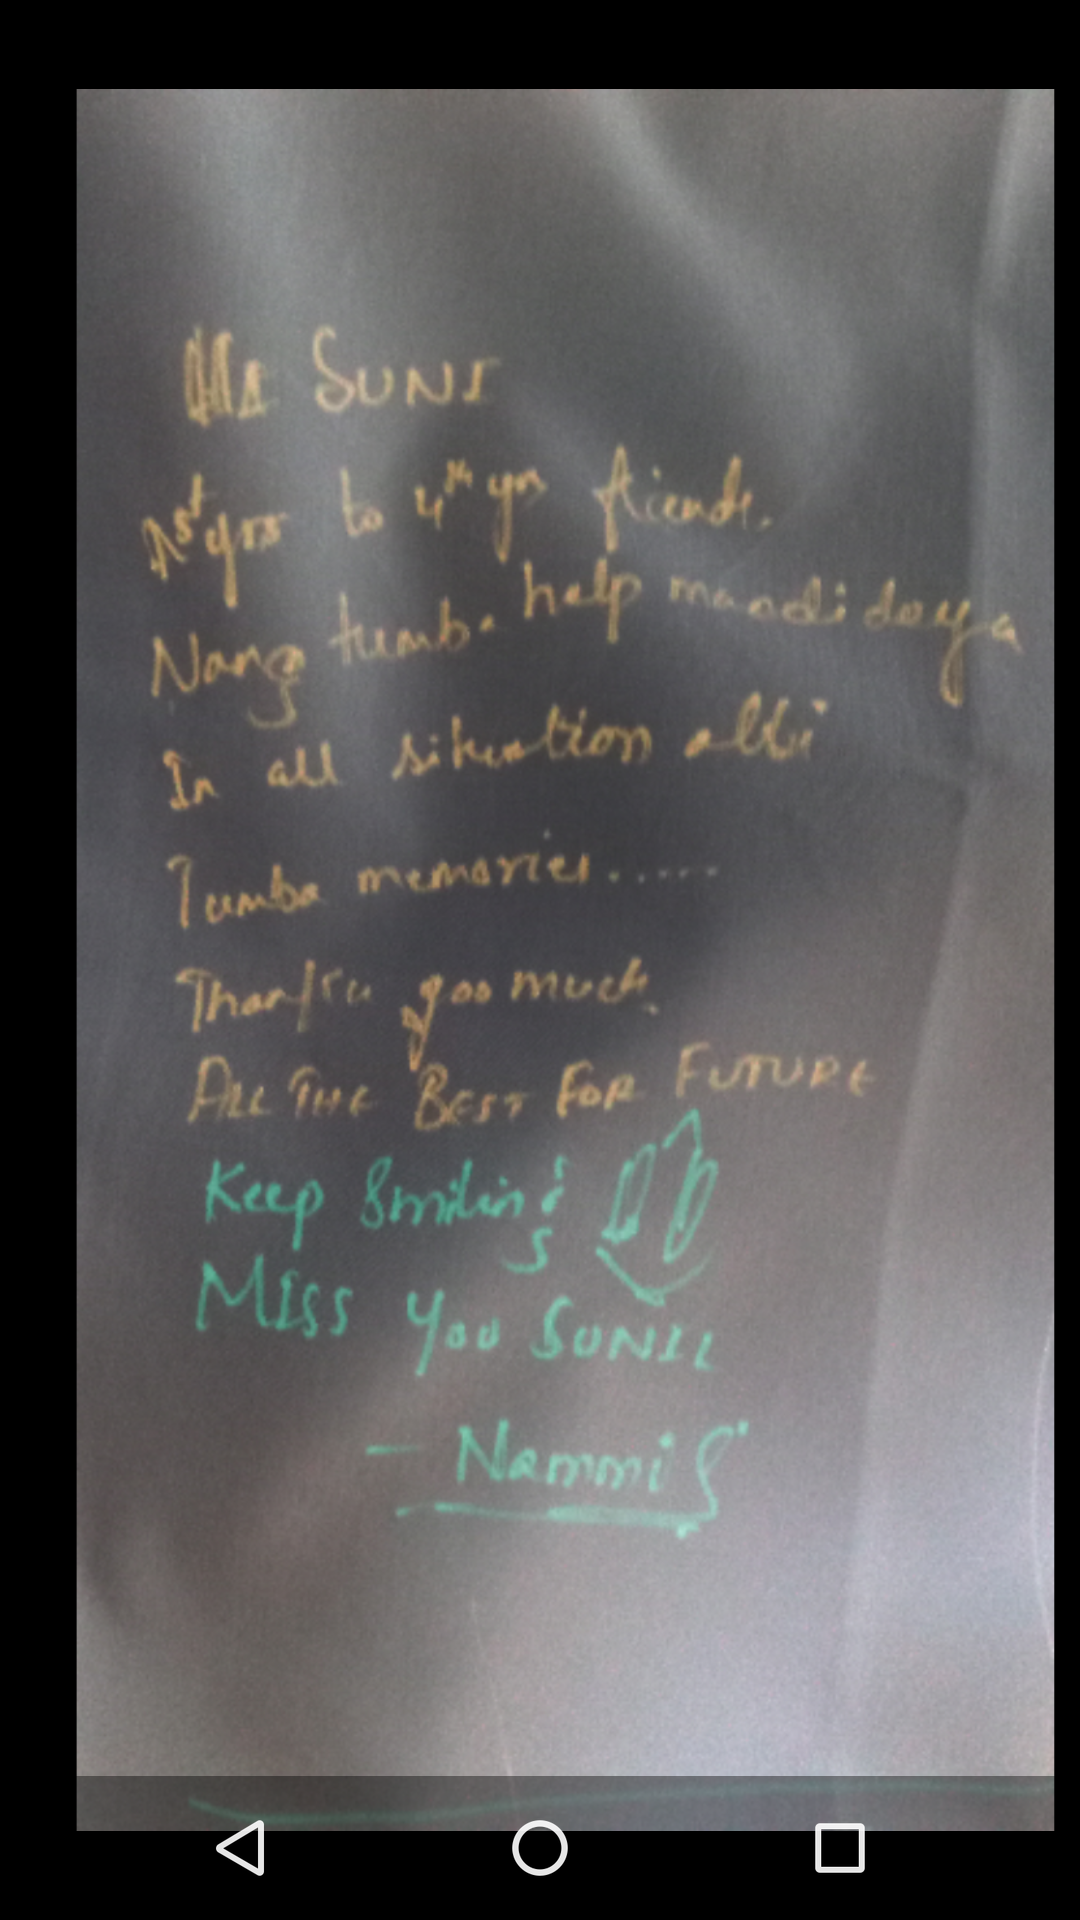 Hi SUNI
1st yrs to 4th yrs friends.
Nang tumba help maadidaya
In all situation alli
Tumba memories......
Thanku yoo much
ALL THE BEST FOR FUTURE
Keep Smiling
MISS YOU SUNIL
- Nammi S